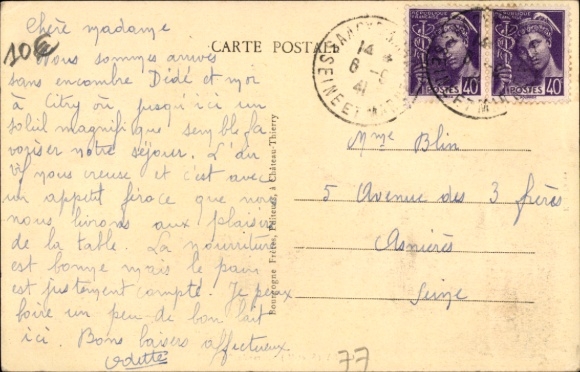 Chère madame
10€
Nous sommes arrivés
sans encombre Dédé et moi
à Citry où jusqu'ici un
soleil magnifique semble fa
voriser notre séjour. L'air
vif nous creuse et c'est avec
un appetit féroce que nous
nous livrons aux plaisirs
de la table. La nourriture
est bonne mais le pain
est justement compté. Je peux
boire un peu de bon lait
ici. Bons baisers affectueux
Odette
CARTE POSTALE
14
6
41
SEINE ET MARNE
POSTES 40
POSTES 40
Bourgogne Frères, à Château-Thierry
Mme Blin
5 Avenue des 3 frères
Asnières
Seine
77